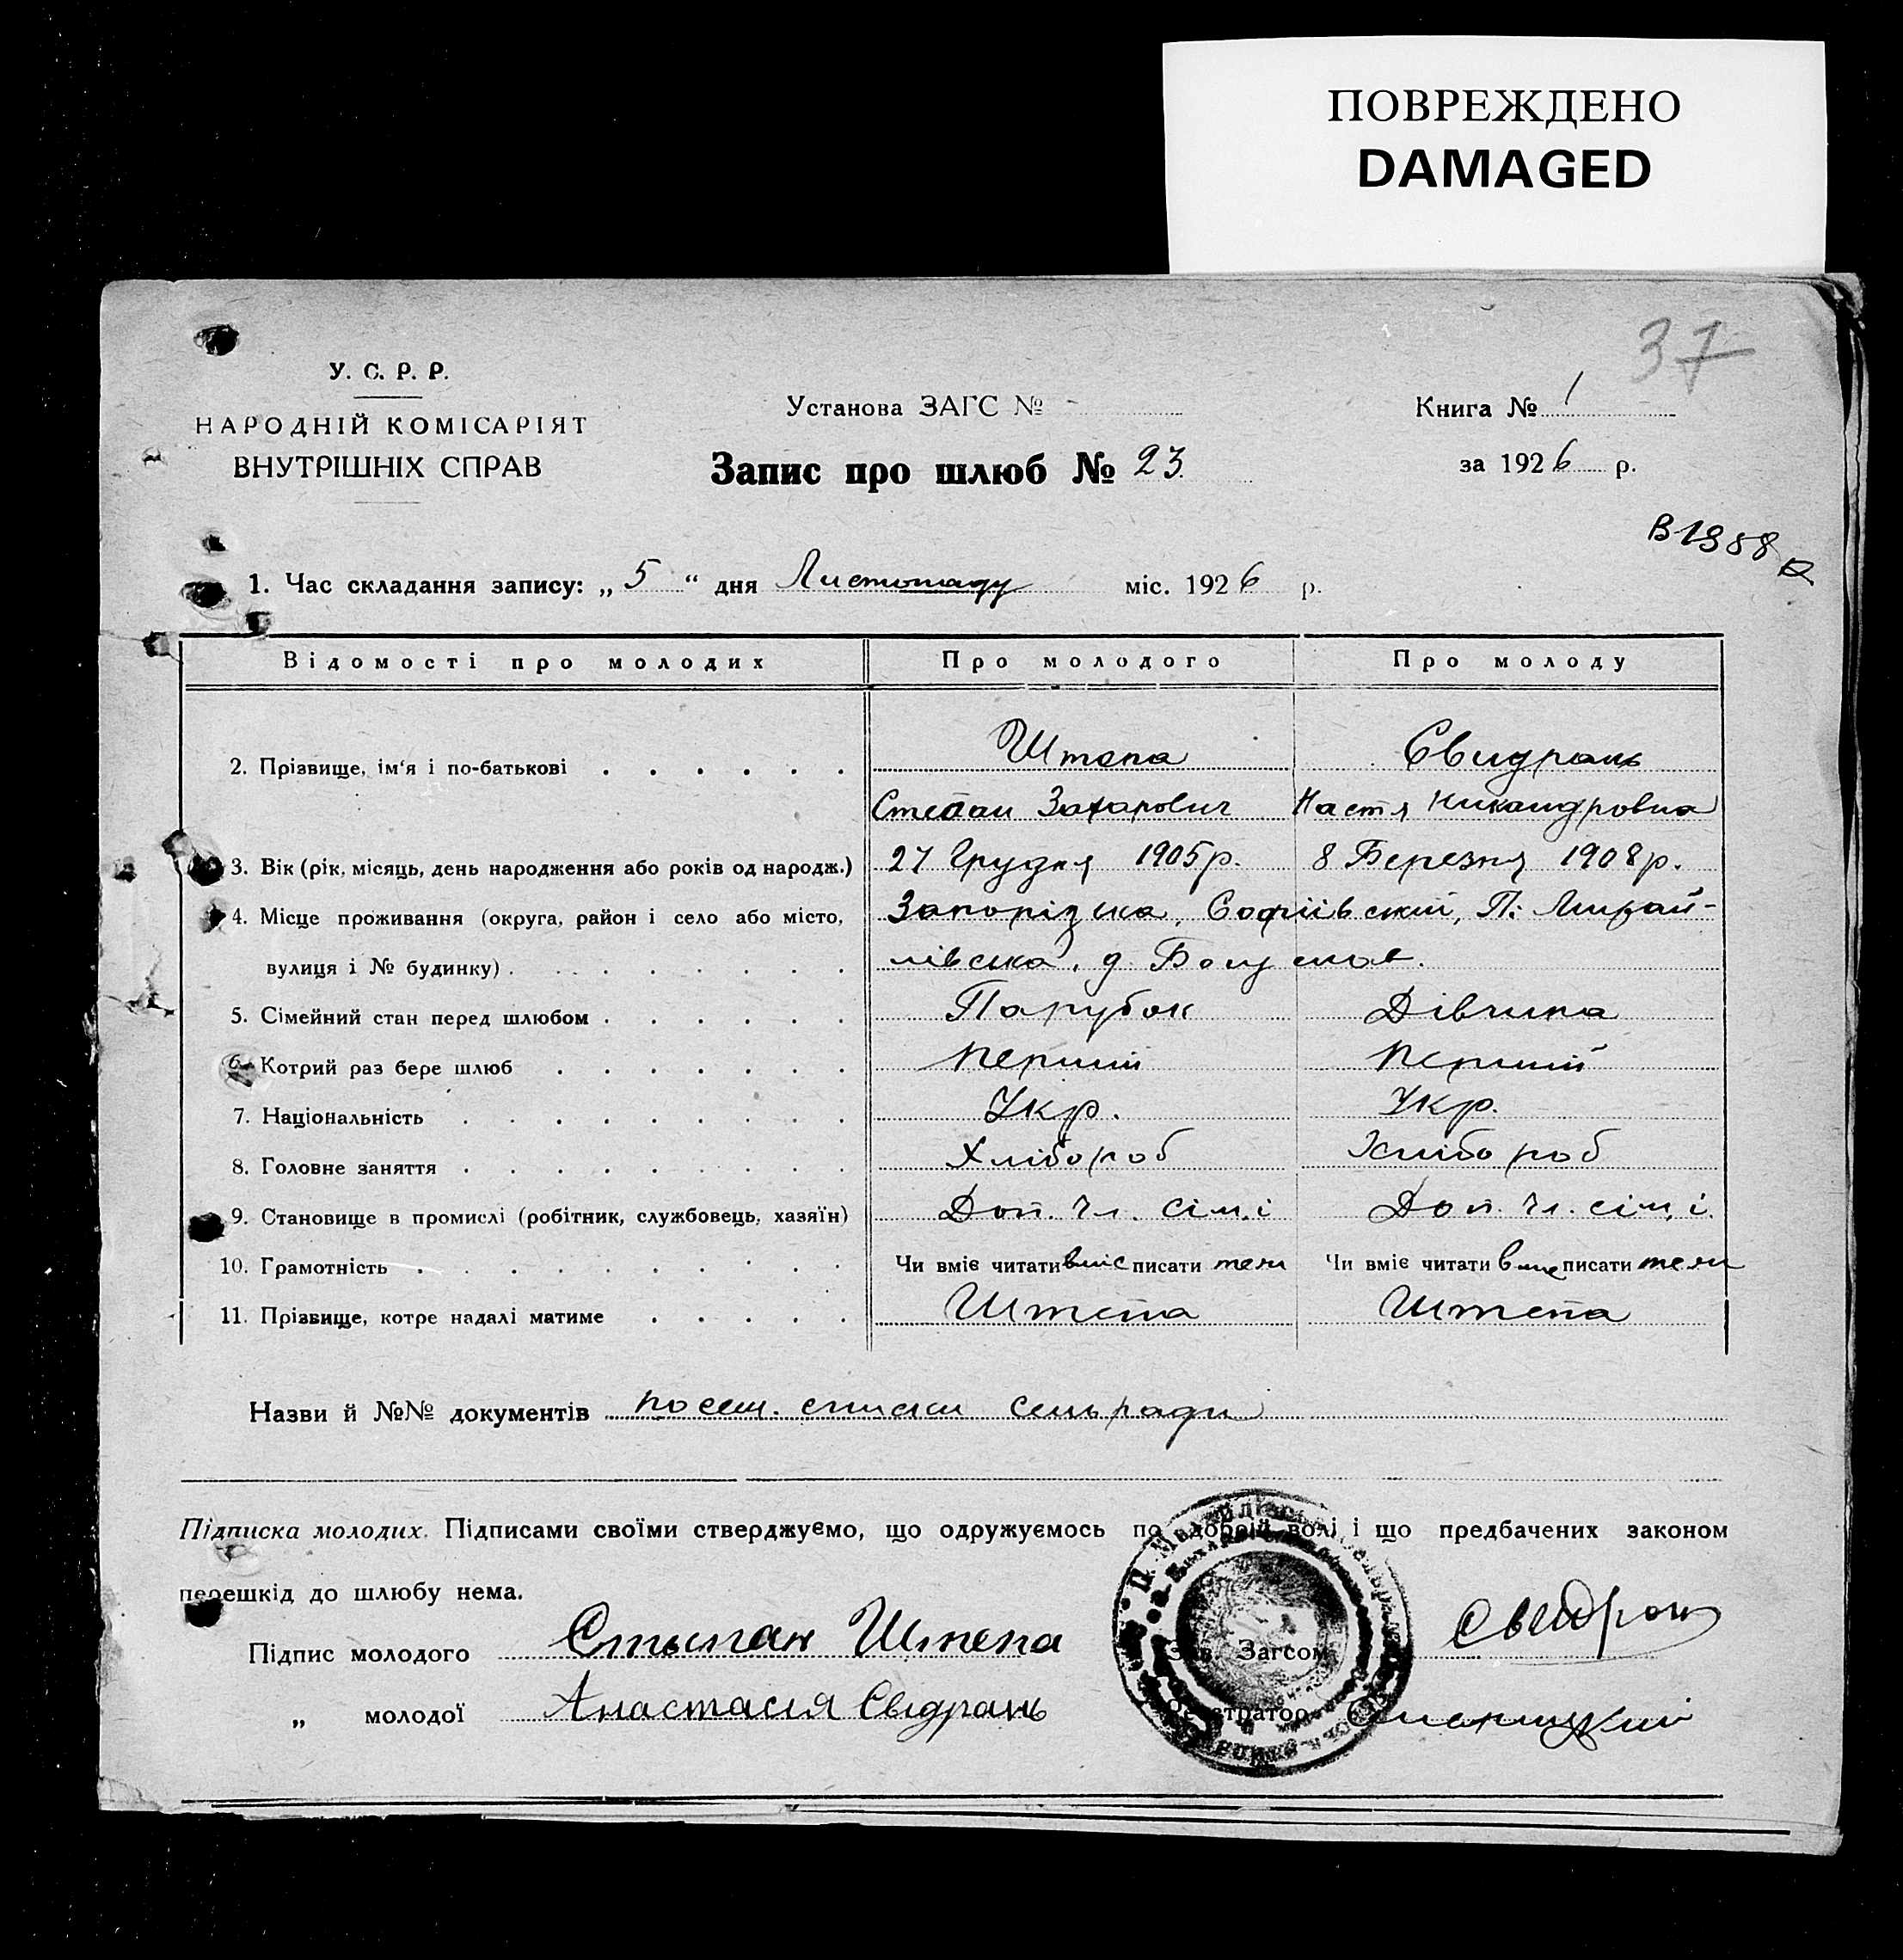 ПОВРЕЖДЕНО
DAMAGED
37
У. С. Р. Р.
НАРОДНІЙ КОМІСАРІЯТ
ВНУТРІШНІХ СПРАВ
Установа ЗАГС № -
Запис про шлюб № 23
Книга № 1
за 1926 р.
В 1988
1. Час складання запису: „ 5 “ дня Листопаду міс. 1926 р.
Відомості про молодих Про молодого Про молоду
2. Прізвище, ім'я і по-батькові Штепа Свидрань
Степан Захарович Настя Никандровна
3. Вік (рік, місяць, день народження або років од народж.) 27 Грудня 1905 р. 8 Березня 1908 р.
4. Місце проживання (округа, район і село або місто, Запорізька, Софіївский, П. Михай-
вулиця і № будинку) лівська, д.
5. Сімейний стан перед шлюбом Парубок Дівчина
6. Котрий раз бере шлюб Перший Перший
7. Національність Укр. Укр.
8. Головне заняття Хлібороб Хлібороб
9. Становище в промислі (робітник, службовець, хазяїн) Доп. чл. сім.і Доп. чл. сім.і
10. Грамотність Чи вміє читати вміє писати теж Чи вміє читати вміє писати теж
11. Прізвище, котре надалі матиме Штепа Штепа
Назви й №№ документів посем. списки сельради
Підписка молодих. Підписами своїми стверджуємо, що одружуємось по добрій волі і що предбачених законом
перешкід до шлюбу нема.
Підпис молодого Стыпан Штепа Зав. Загсом Свидрань
„ молодої Анастасия Свідрань Реєстратор